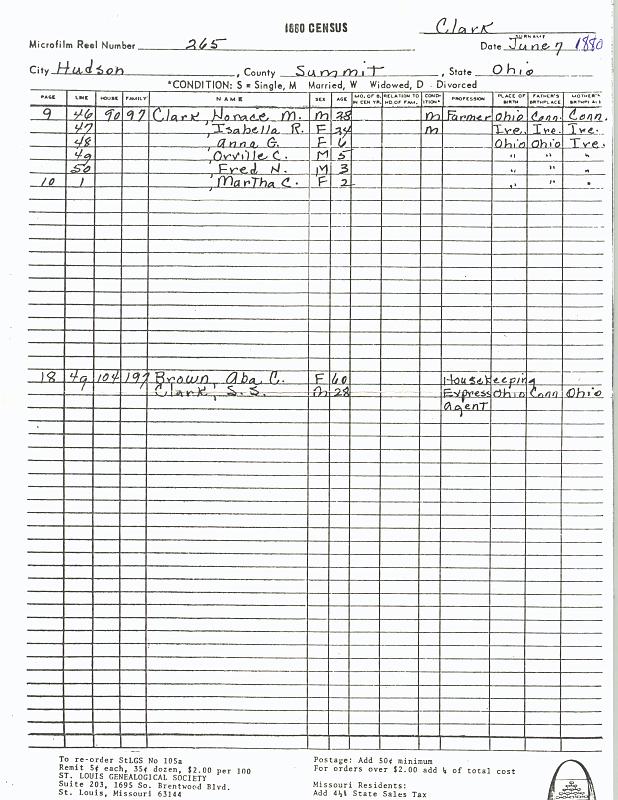 1880 CENSUS
Clark
SURNAME
Microfilm Reel Number 265 Date June 7 1880
City Hudson , County Summit , State Ohio
*CONDITION: S = Single, M Married, W Widowed, D Divorced
PAGE LINE HOUSE FAMILY NAME SEX AGE MO. OF B. IN CEN YR. RELATION TO HD. OF FAM. CONDITION* PROFESSION PLACE OF BIRTH FATHER'S BIRTHPLACE MOTHER'S BIRTHPLACE
9 46 90 97 Clark, Horace M. m 38 m Farmer Ohio Conn. Conn.
47 , Isabella R. F 34 m Ire. Ire. Ire.
48 , Anna G. F 6 Ohio Ohio Ire.
49 , Orville C. M 5 " " "
50 , Fred N. M 3 " "
10 1 , Martha C. F 2 " " "
18 49 104 197 Brown, Aba C. F 60 Housekeeping
Clark, S.S. m 28 Express Ohio Conn Ohio
agent
To re-order StLGS No 105a
Remit 5¢ each, 35¢ dozen, $2.00 per 100
ST. LOUIS GENEALOGICAL SOCIETY
Suite 203, 1695 So. Brentwood Blvd.
St. Louis, Missouri 63144
Postage: Add 50¢ minimum
For orders over $2.00 add ¼ of total cost
Missouri Residents:
Add 4½% State Sales Tax